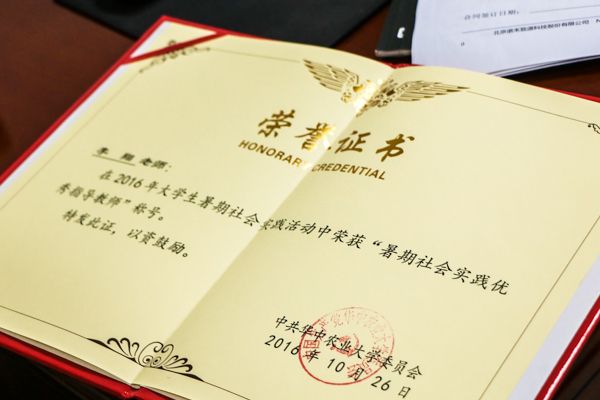 合同签订日期：
北京诺禾致源科技股份有限公司
荣誉证书
HONORARY CREDENTIAL
李翔老师：
在2016年大学生暑期社会实践活动中荣获“暑期社会实践优
秀指导教师”称号。
特发此证，以资鼓励。
中共华中农业大学委员会
2016年10月26日